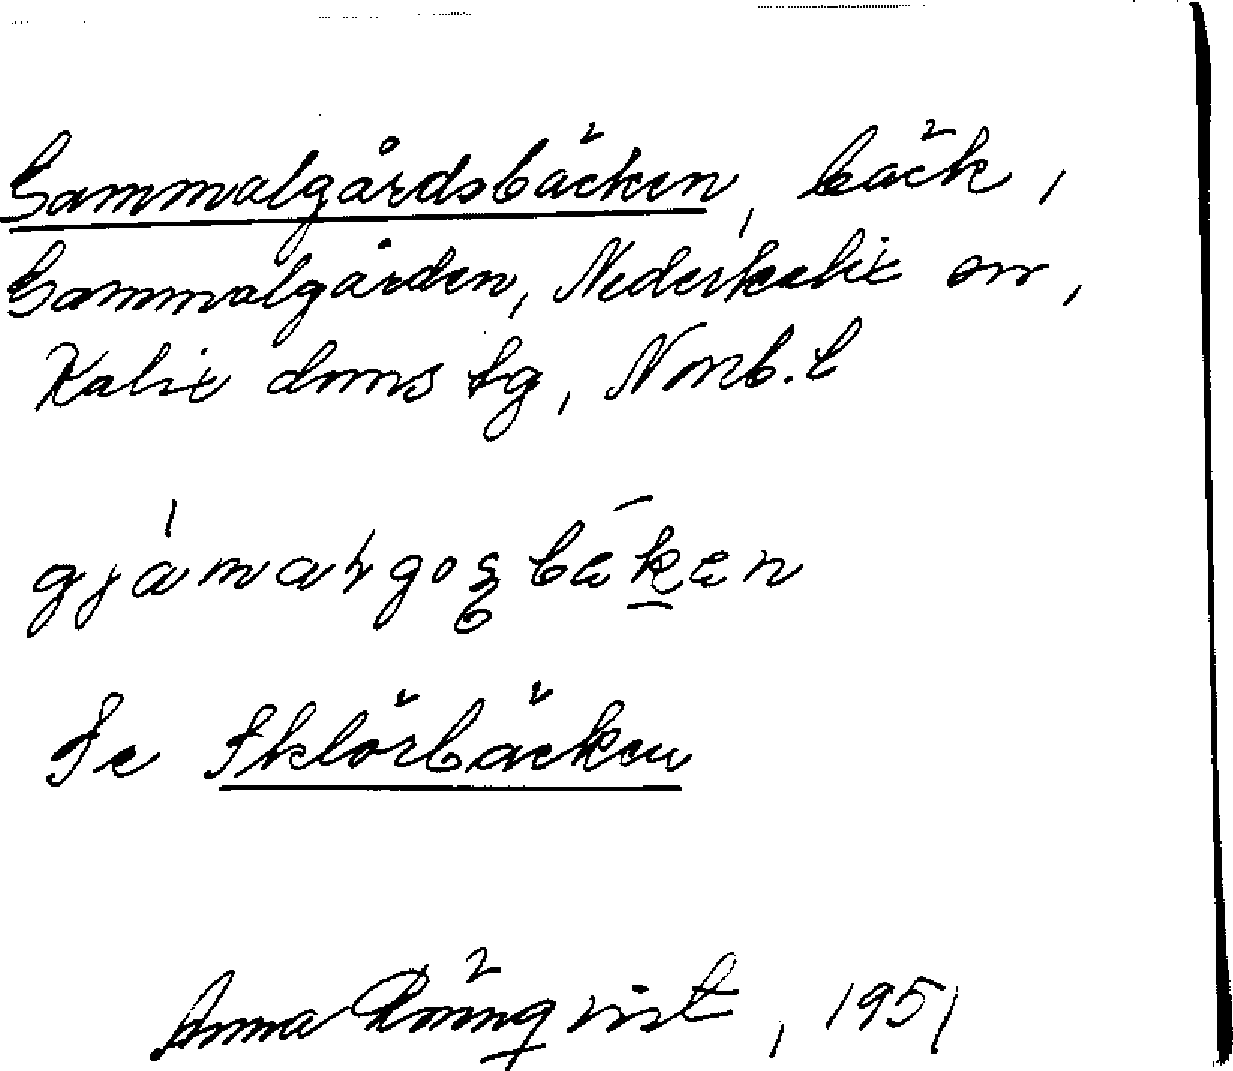 Gammalgårdsbäcken, bäck,
Gammalgården, Nederkalix sn,
Kalix doms tg, Norrb. l
gjámaƚgoş bækæn
Se Sklörbäcken
Anna Rönnqvist, 1951